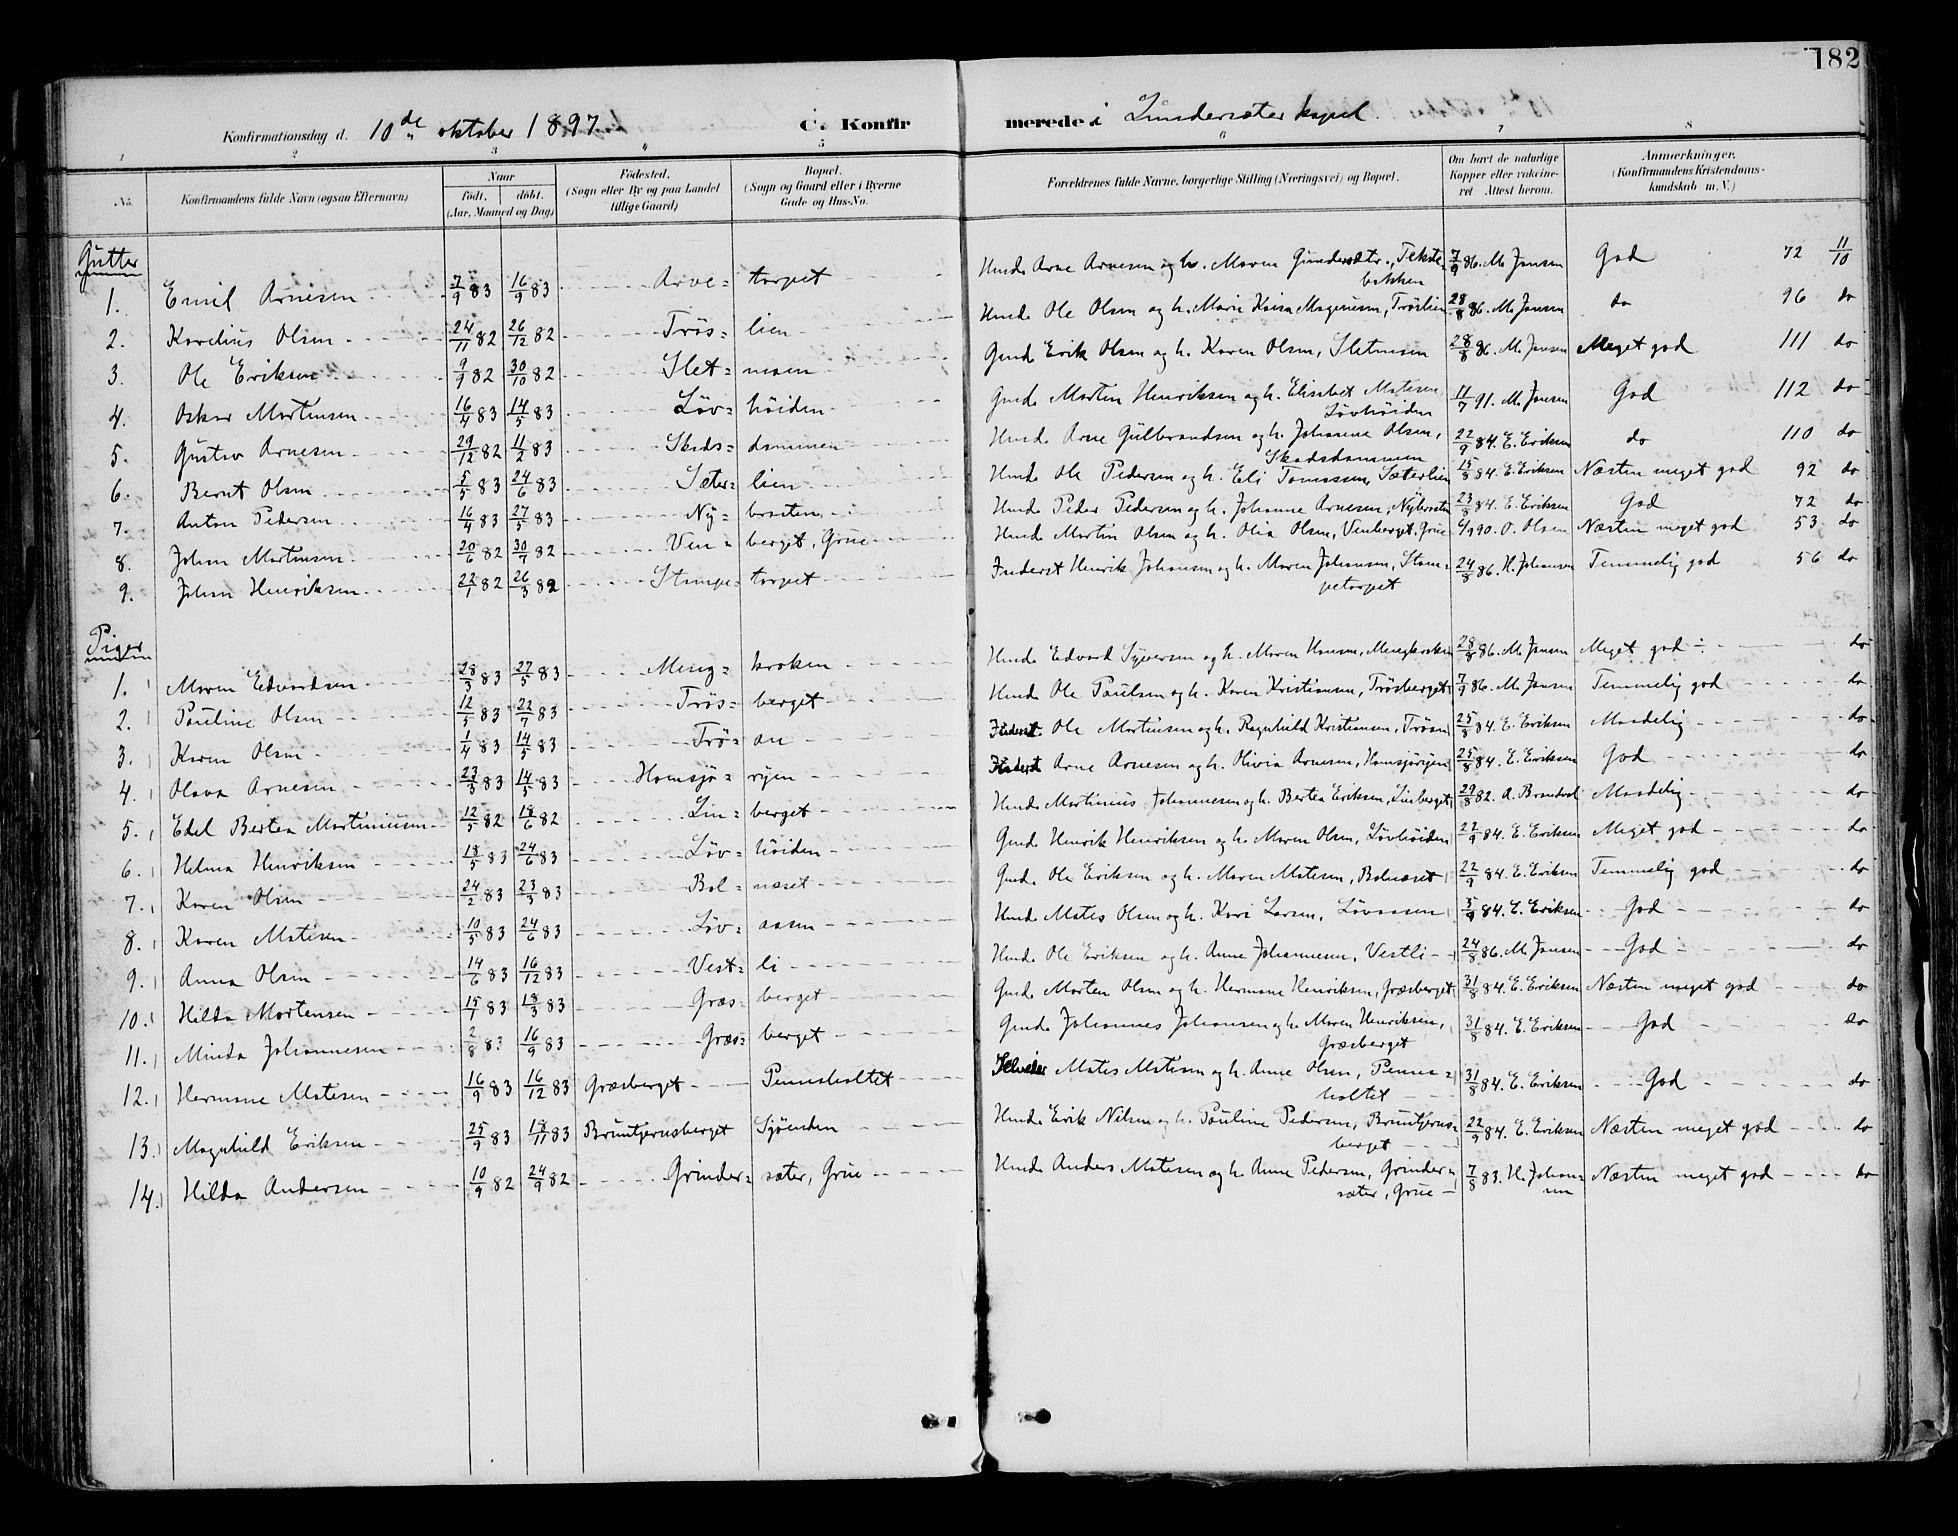 182
Konfirmationsdag d. 10de oktober 1897. C. Konfirmerede i Lundersæter kapel.
1 2 3 4 5 6 7 8
No. Konfirmandens fulde Navn (ogsaa Efternavn) Naar født, døbt. (Aar, Maaned og Dag) Födested. (Sogn eller By og paa Landet tillige Gaard) Bopæl. (Sogn og Gaard eller i Byerne Gade og Hus-No. Forældrenes fulde Navne, borgerlige Stilling (Næringsvei) og Bopæl. Om havt de naturlige Kopper eller vaccineret Attest herom. Anmærkninger. (Konfirmandens Kristendomskundskab m. V.)
Gutter
1. Emil Arnesen 7/9 83 16/9 83 Arve= torpet Husmd. Arne Arnesen og h. Maren Gundersdtr., Tekstebakken 7/9 86. M. Jansen God 72 11/10
2. Karelius Olsen 24/11 82 26/12 82 Trös= lien Husmd. Ole Olsen og h. Marie Kaisa Magnusen, Tröslien 28/8 86. M. Jansen do 96 do
3. Ole Eriksen 9/9 82 30/10 82 Slet= moen Gmd. Erik Olsen og h. Karen Olsen, Sletmoen 28/8 86. M. Jansen Meget god 111 do
4. Oskar Martinsen 16/4 83 14/5 83 Löv= höiden Gmd. Morten Henriksen og h. Elisabet Matisen Lövhöiden 11/7 91. M. Jansen God 112 do
5. Gustav Arnesen 29/12 82 11/2 83 Skads= dammen Husmd. Arne Gulbrandsen og h. Johanne Olsen, Skadsdammen 22/9 84. E. Eriksen do 110 do
6. Bernt Olsen 5/5 83 24/6 83 Sæter= lien Husmd. Ole Pedersen og h. Eli Tomessen, Sæterlien 15/8 84. E. Eriksen Næsten meget god 92 do
7. Anton Pedersen 16/4 83 27/5 83 Ny= braaten Husmd. Peder Pedersen og h. Johanne Arnesen, Nybraaten 23/8 84. E. Eriksen God 72 do
8. Johan Martinsen 20/6 82 30/7 82 Ven= berget, Grue Husmd. Martin Olsen og h. Olia Olsen, Venberget, Grue 6/9 90. O. Olsen Næsten meget god 53 do
9. Johan Henriksen 22/1 82 26/3 82 Stampe= torpet Inderst Henrik Johansen og h. Maren Johansen, Stampetorpet 24/8 86. H. Johansen Temmelig god 56 do
Piger
1. Maren Edvardsen 28/3 83 27/5 83 Meng= kroken Husmd. Edvard Syversen og h. Maren Hansen, Mengkroken 28/8 86. M. Jansen Meget god ÷ do
2. Pauline Olsen 12/5 83 22/7 83 Trös= berget Husmd. Ole Paulsen og h. Karen Kristiansen, Trösberget 7/9 86. M. Jansen Temmelig god do
3. Karen Olsen 1/4 83 14/5 83 Trö= en Inderst Ole Mortensen og h. Ragnhild Kristiansen, Tröen 25/8 84. E. Eriksen Maadelig do
4. Olava Arnesen 23/3 83 14/5 83 Hamsjö= ryen Inderst Arne Arnesen og h. Olivia Arnesen, Hamsjöryen 25/8 84. E. Eriksen God do
5. Edel Bertea Martiniusen 12/5 82 18/6 82 Lin= berget Husmd. Martinius Johannesen og h. Bertea Eriksen, Linberget 29/8 82. A. Brandvol Maadelig do
6. Helma Henriksen 18/5 83 24/6 83 Löv= höiden Gmd. Henrik Henriksen og h. Maren Olsen, Lövhöiden 22/9 84. E. Eriksen Meget god do
7. Karen Olsen 24/2 83 23/3 83 Bol= næset Gmd. Ole Eriksen og h. Maren Matisen, Bolnæset 22/9 84. E. Eriksen Temmelig god do
8. Karen Matisen 10/5 83 24/6 83 Löv= aasen Husmd. Mates Olsen og h. Kari Larsen, Lövaasen 5/9 84. E. Eriksen God do
9. Anna Olsen 14/6 83 16/12 83 Vest= li Husmd. Ole Eriksen og h. Anne Johannesen, Vestli 24/8 86. M. Jansen God do
10. Hilda Mortensen 15/1 83 18/3 83 Græs= berget Gmd. Morten Olsen og h. Hermane Henriksen, Græsberget 31/8 84. E. Eriksen Næsten meget god do
11. Minda Johannesen 2/8 83 16/9 83 Græs= berget Gmd. Johannes Johansen og h. Maren Henriksen, Græsberget 31/8 84. E. Eriksen God do
12. Hermane Matesen 16/9 83 16/12 83 Græsberget Penneholtet Mates Matesen og h. Anne Olsen, Penneholtet 31/8 84. E. Eriksen God do
13. Magnhild Eriksen 25/9 83 18/11 83 Bruntjernsberget Sjöenden Husmd. Erik Nilsen og h. Pauline Pedersen, Bruntjernsberget 22/9 84. E. Eriksen Næsten meget god do
14. Hilda Andersen 10/9 82 24/9 82 Grinder= sæter, Grue Husmd. Anders Matesen og h. Anne Pedersen, Grindersæter, Grue 7/8 83. H. Johansen Næsten meget god do